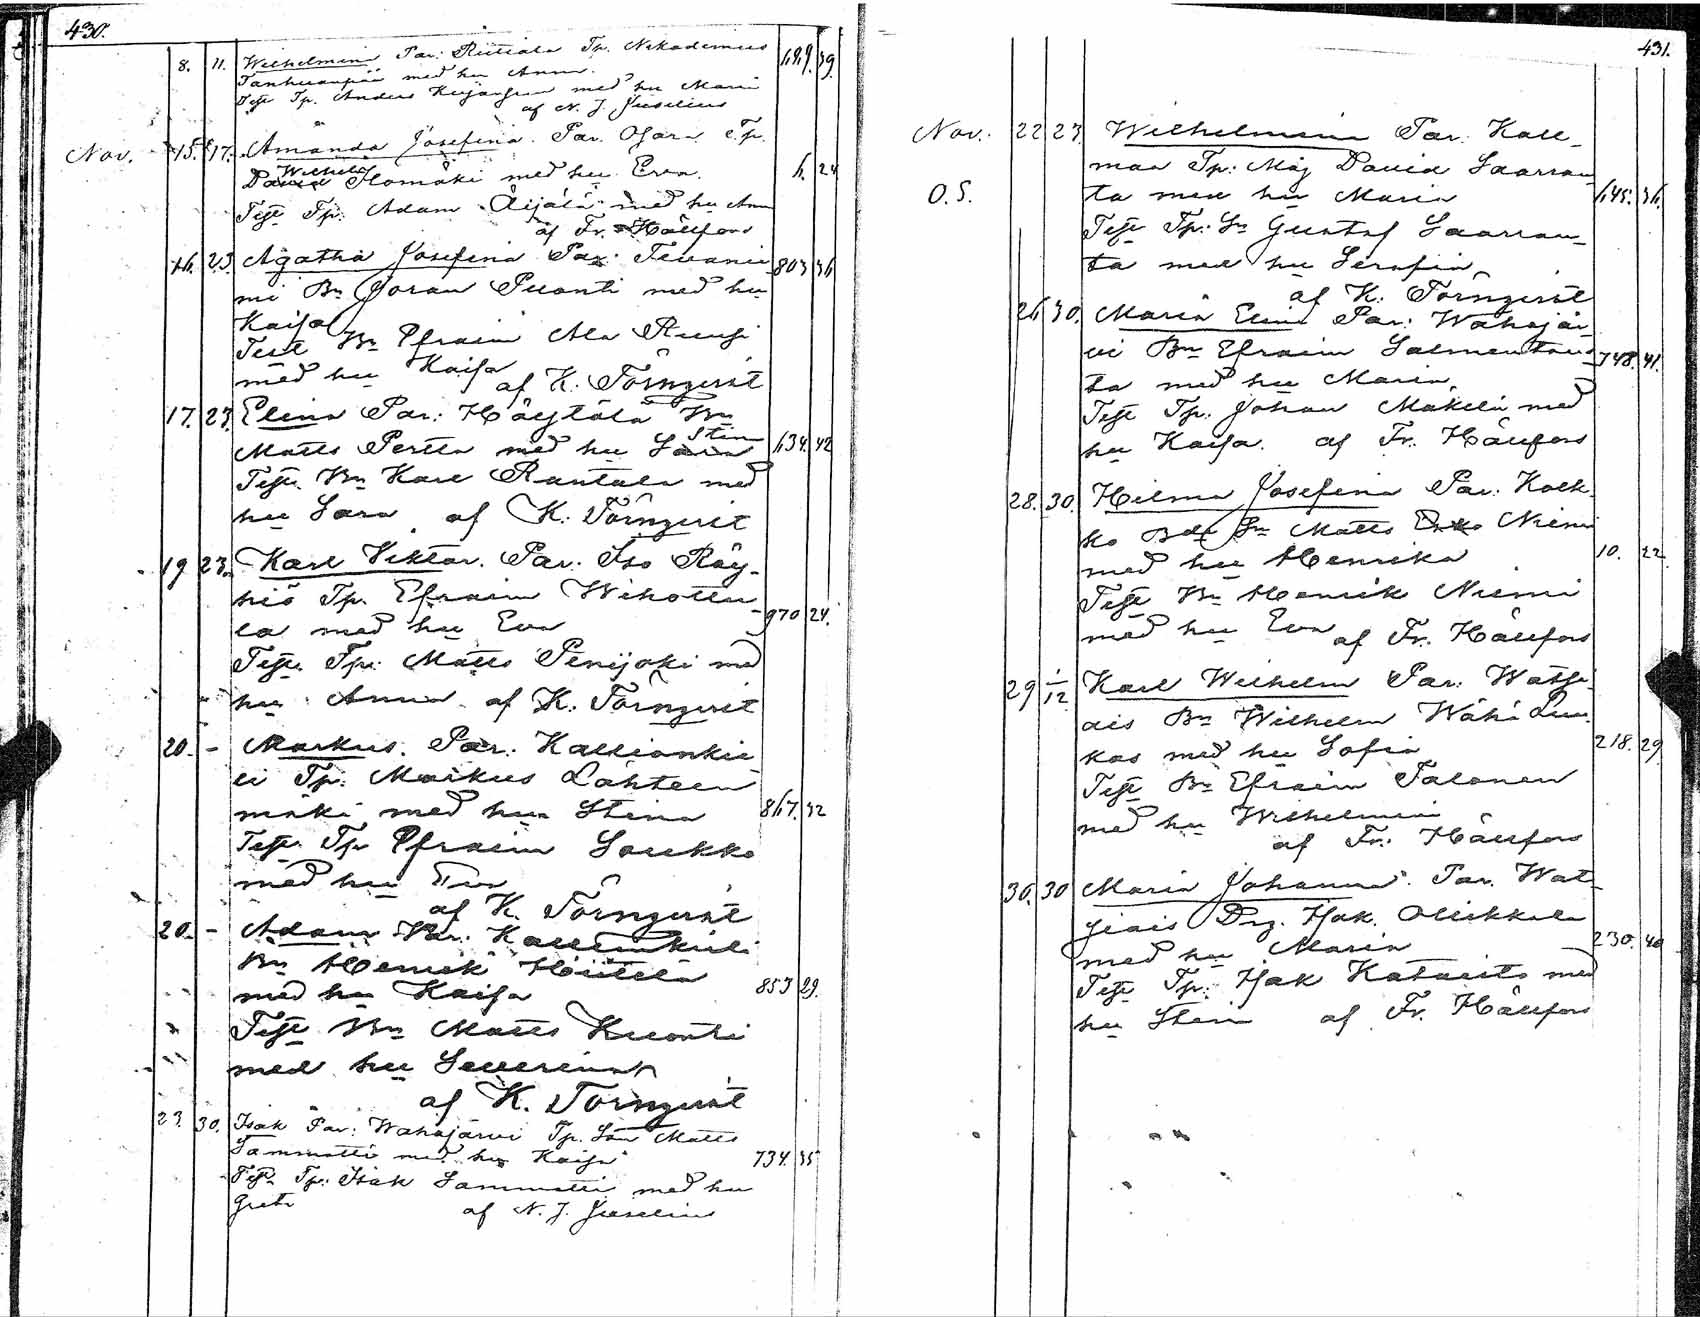 430.
8. 11. Wilhelmina Par: Tp. Nikodemus
med hu Anna.
Test Tp. Anders med hu Maria
af N. J. Juselius
Nov. 15. 17. Amanda Josefina. Par. Ojara Tp. 
Wilhelm
David Ilomäki med hu Eva. 6. 24
Test Tp: Adam Äijälä med hu Ann
af Fr. Hällfors
16. 23. Agatha Josefina Par: Teuanie 803 36
mi Bn Göran Puonti med hu
Kaisa
Test Bn Efraim Ala Ruusi
med hu Kaisa
af K. Törnqvist
17. 23. Elina Par: Höytölä Bn
Stina
Matts Pertta med hu Sara 634. 42
Test Bn Karl Rantala med
hu Sara af K. Törnqvist
19 23. Karl Viktor. Par: Iso Röy-
hiö Tp. Efraim Wihottu
la med hu Eva 970 24.
Test Tp: Matts Penijoki med
hu Anna af K. Törnqvist
20. - Markus. Par: Kallionkie
li Tp: Markus Lähteen
mäki med hu Stina 867. 32
Test Tp Efraim Loukko
med hu Eva
af K. Törnqvist
20. - Adam Par: Kallionkieli
Bn Henrik Hiitelä
med hu Kaisa 853 29.
Test Bn Matts Kuonti
med hu Severina
af K. Törnqvist
23. 30. Isak Par: Wahojärvi Tp. Son Matts
Sammatti med hu Kaisa 734. 35
Test Tp: Isak Sammatti med hu
Greta af N. J. Juselius
431.
Nov. 22 23 Wilhelmina Par. Kall-
maa Tp: Måg David Saarau
O.S. ta med hu Maria 645. 36.
Test Tp: Sn Gustaf Saarau-
ta med hu Serafin
af K. Törnqvist
26 30. Maria Elina Par: Wahojär
vi Bn Efraim Salmentaus 748. 41.
ta med hu Maria.
Test Tp: Johan Mäkelä med
hu Kaisa. af Fr. Hällfors
28. 30. Hilma Josefina Par: Kolk
ko Bde Sn Matts Niemi
med hu Henrika 10. 22
Test Bn Henrik Niemi
med hu Eva af Fr. Hällfors
29 1/12 Karl Wilhelm Par: Watsi
ais Bn Wilhelm Wähä Luu
kas med hu Sofia 218. 29
Test Bn Efraim Talonen
med hu Wilhelmin
af Fr. Hällfors
30. 30 Maria Johanna. Par. Wat-
jiais Drg. Isak Ollikkala
med hu Maria 230. 40
Test Tp: Isak med
hu Stin af Fr. Hällfors